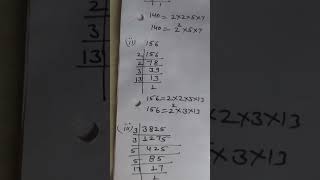 140=2×2×5×7
140=2²×5×7
(ii) 156
2 156
2 78
3 39
13 13
1
156=2×2×3×13
156=2²×3×13
(iii) 3 3825
3 1275
5 425
5 85
17 17
1